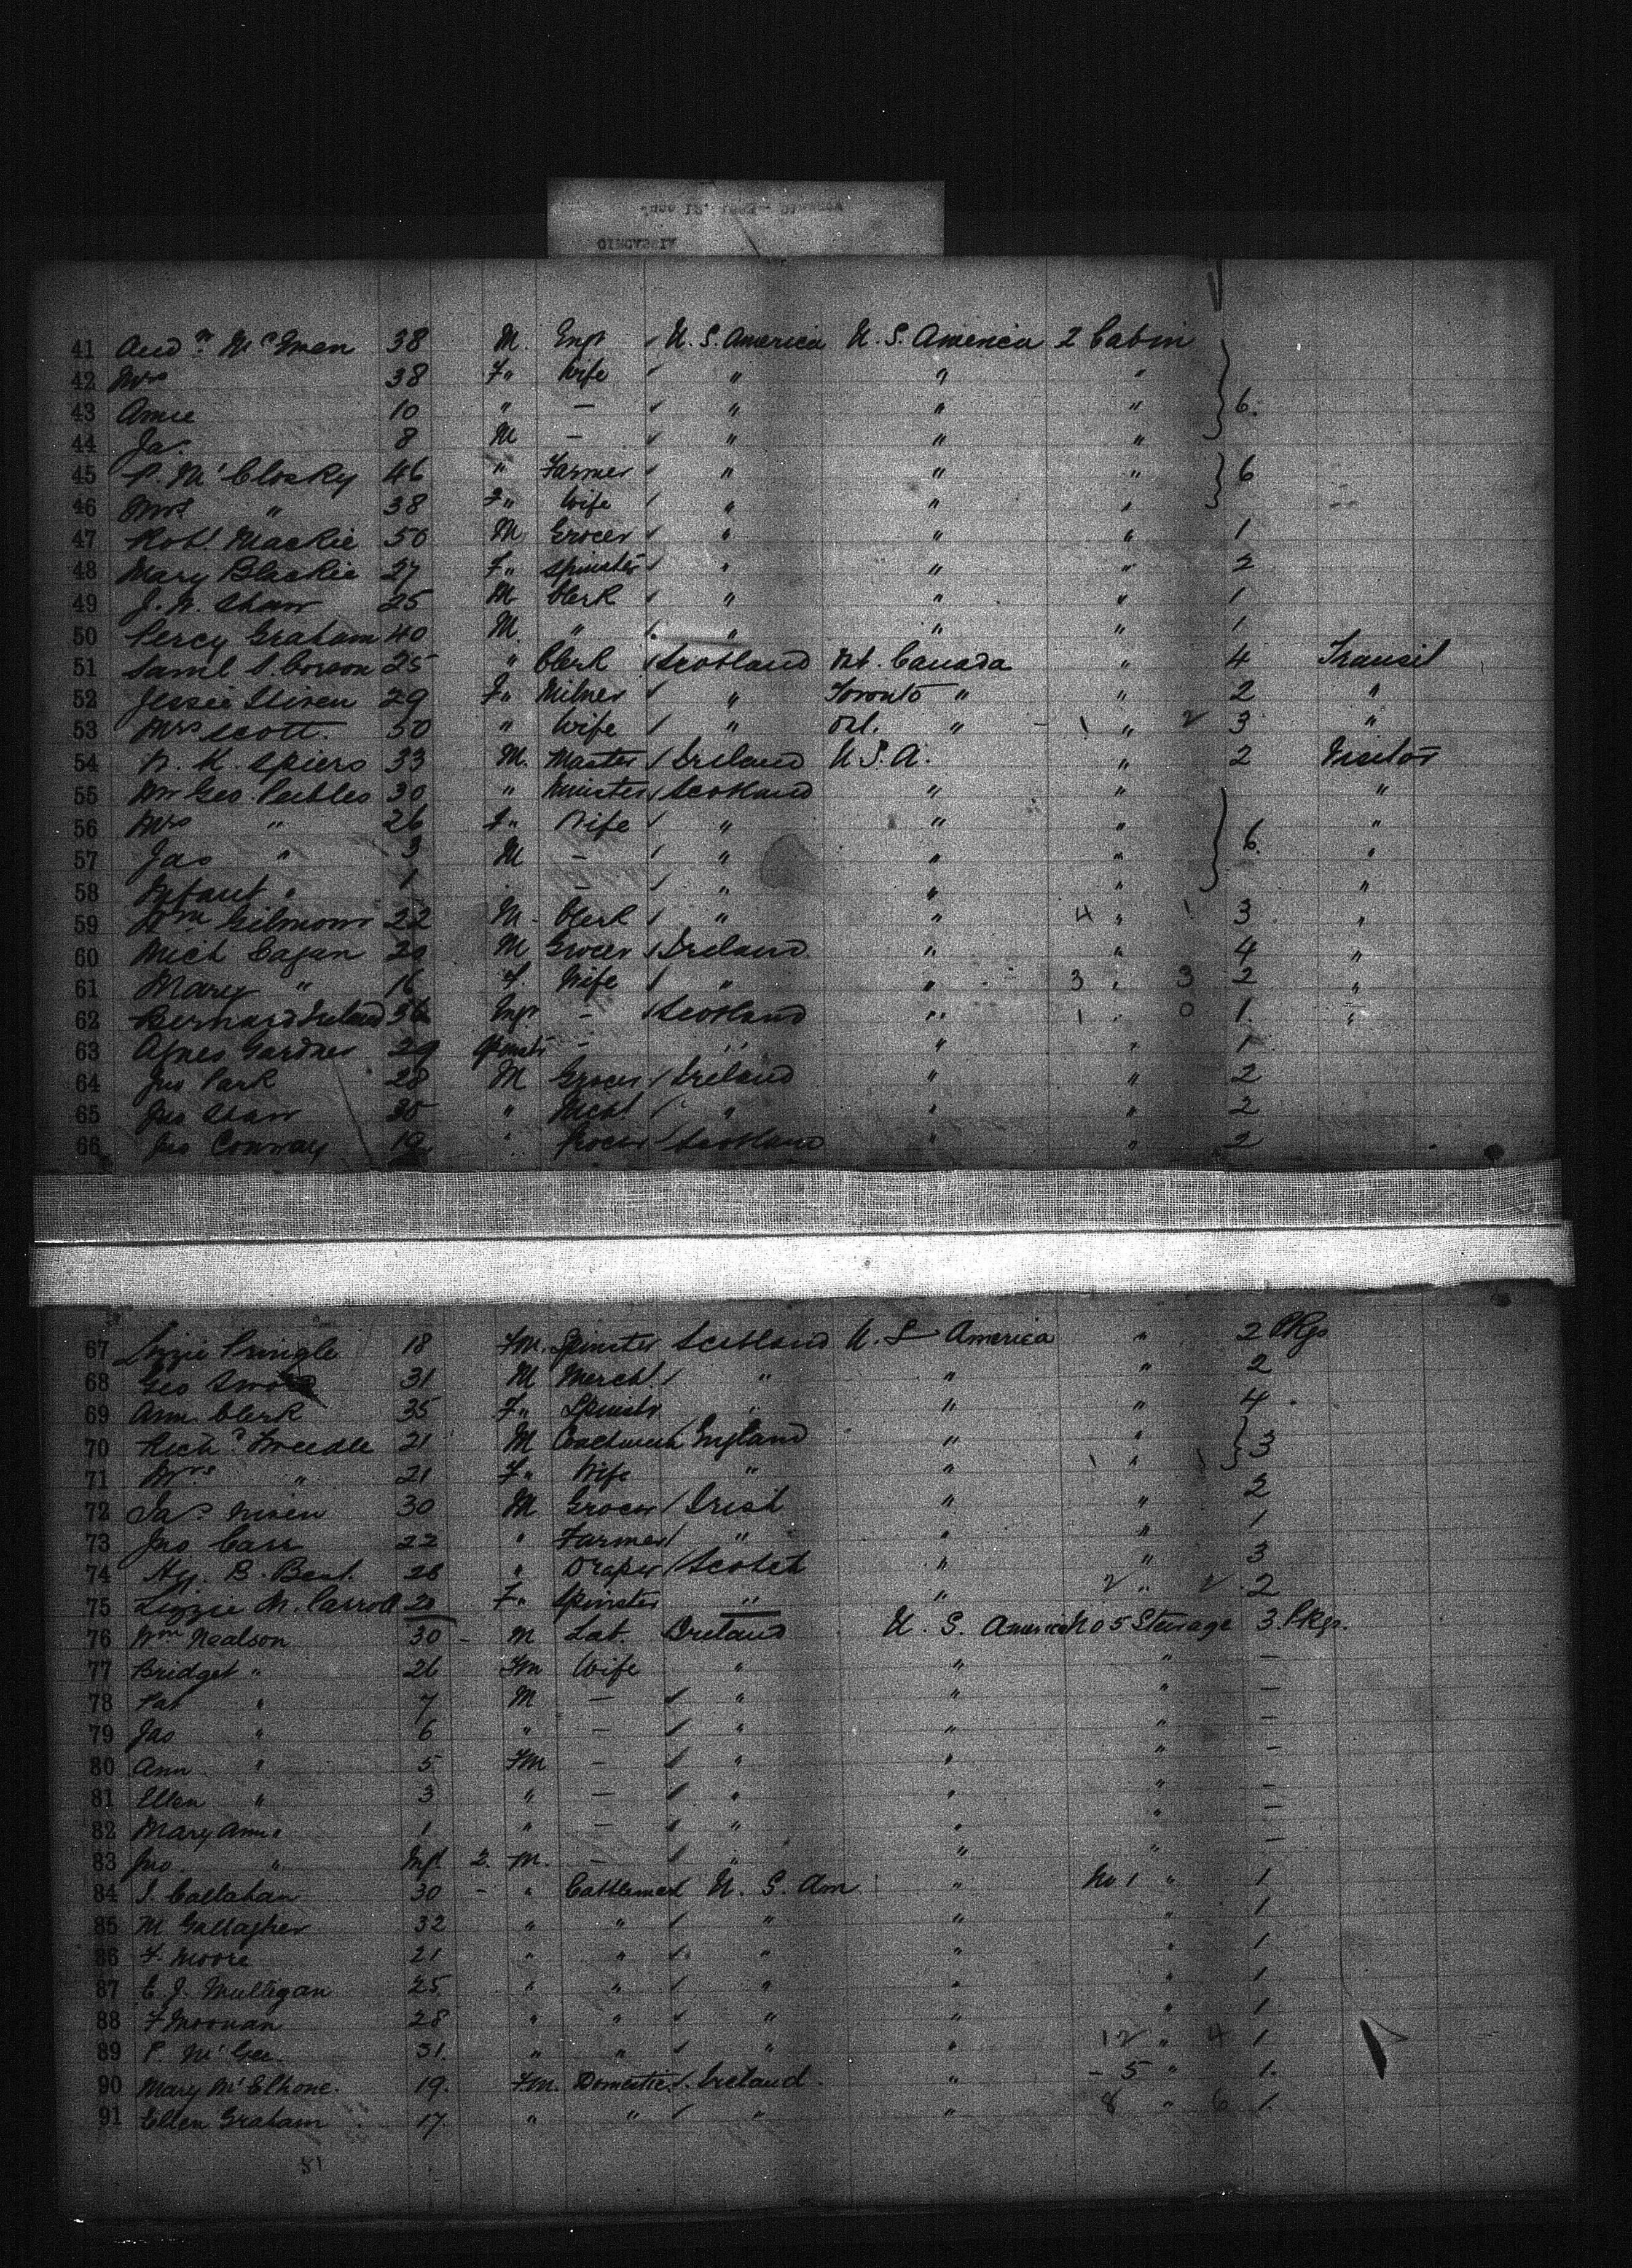 41 And.w McEwen 38 M. Engr U.S. America U.S. America 2 Cabin
42 Mrs 38 F„ Wife „ „ „
43 Amie 10 „ — „ „ „ 6.
44 Jas. 8 M — „ „ „
45 P. McClosky 46 „ Farmer „ „ „ 6
46 Mrs „ 38 F„ Wife „ „ „
47 Robt Mackie 50 M Grocer „ „ „ 1
48 Mary Blackie 27 F„ Spinster „ „ „ 2
49 J. W. Shaw 25 M Clerk „ „ „ 1
50 Percy Graham 40 M. „ „ „ „ 1
51 Saml S. Corson 25 „ Clerk Scotland Nt. Canada „ 4 Transit
52 Jessie Stiven 29 F„ Milner „ Toronto „ „ 2 „
53 Mrs Scott. 50 „ Wife „ Ot. „ - 1 „ 2 3 „
54 N. K. Spiers 33 M. Master Ireland U.S.A. „ 2 Visitor
55 Mr Geo. Peebles 30 „ Minister Scotland „ „ „
56 Mrs „ 26 F„ Wife „ „ „ „
57 Jas „ 3 M — „ „ „ 6. „
58 Infant „ 1 — „ „ „ „
59 Wm Gilmour 22 M - Clerk „ „ 4 „ 1 3 „
60 Mich Cagan 20 M Grocer Ireland „ „ 4 „
61 Mary „ 16 F. Wife „ „ 3 „ 3 2 „
62 Bernard Ireland 56 Engr — Scotland „ 1 „ 0 1. „
63 Agnes Gardner 29 Spinstr — „ „ „ 1
64 Jno Park 28 M Grocer Ireland „ „ 2
65 Jno Shaw 35 „ Mcht „ „ „ 2
66 Jno Conway 19 „ Grocer Scotland „ „ 2
67 Lizzie Pringle 18 Fm. Spinster Scotland U. S America „ 2 Pkgs
68 Geo 31 M Mercht „ „ „ 2
69 Ann Clerk 35 F„ Spinstr „ „ „ 4
70 Richd Tweedle 21 M England „ „ 3
71 Mrs „ 21 F„ Wife „ „ 1 „ 1
72 Jas Niven 30 M Grocer Irish „ „ 2
73 Jno Carr 22 „ Farmer „ „ „ 1
74 Hy. B. Bent. 26 „ Draper Scotch „ „ 3
75 Lizzie M. Carroll 20 F„ Spinster „ „ 2 „ 2 2
76 Wm Nealson 30 - M Lab. Ireland U. S. America No 5 Steerage 3. Pkgs.
77 Bridget „ 26 Fm Wife „ „ „ —
78 Pat „ 7 M — „ „ „ —
79 Jas „ 6 „ — „ „ „ —
80 Ann „ 5 Fm — „ „ „ —
81 Ellen „ 3 „ — „ „ „ —
82 Mary Ann „ 1 „ — „ „ „ —
83 Jno. „ Inft 2. M. — „ „ „ —
84 J. Callahan 30 - „ Cattleman U. S. Am „ No 1 „ 1
85 M Gallagher 32 „ „ „ „ „ 1
86 F. Moore 21 „ „ „ „ „ 1
87 E. J. Mulligan 25. „ „ „ „ „ 1
88 F Moonan 28 „ „ „ „ „ 1
89 P. McGee. 31. „ „ „ „ 12 „ 4 1.
90 Mary McElhone. 19. Fm. Domestic Ireland. „ - 5 „ 1.
91 Ellen Graham 17. „ „ „ „ 8 „ 6 1.
81